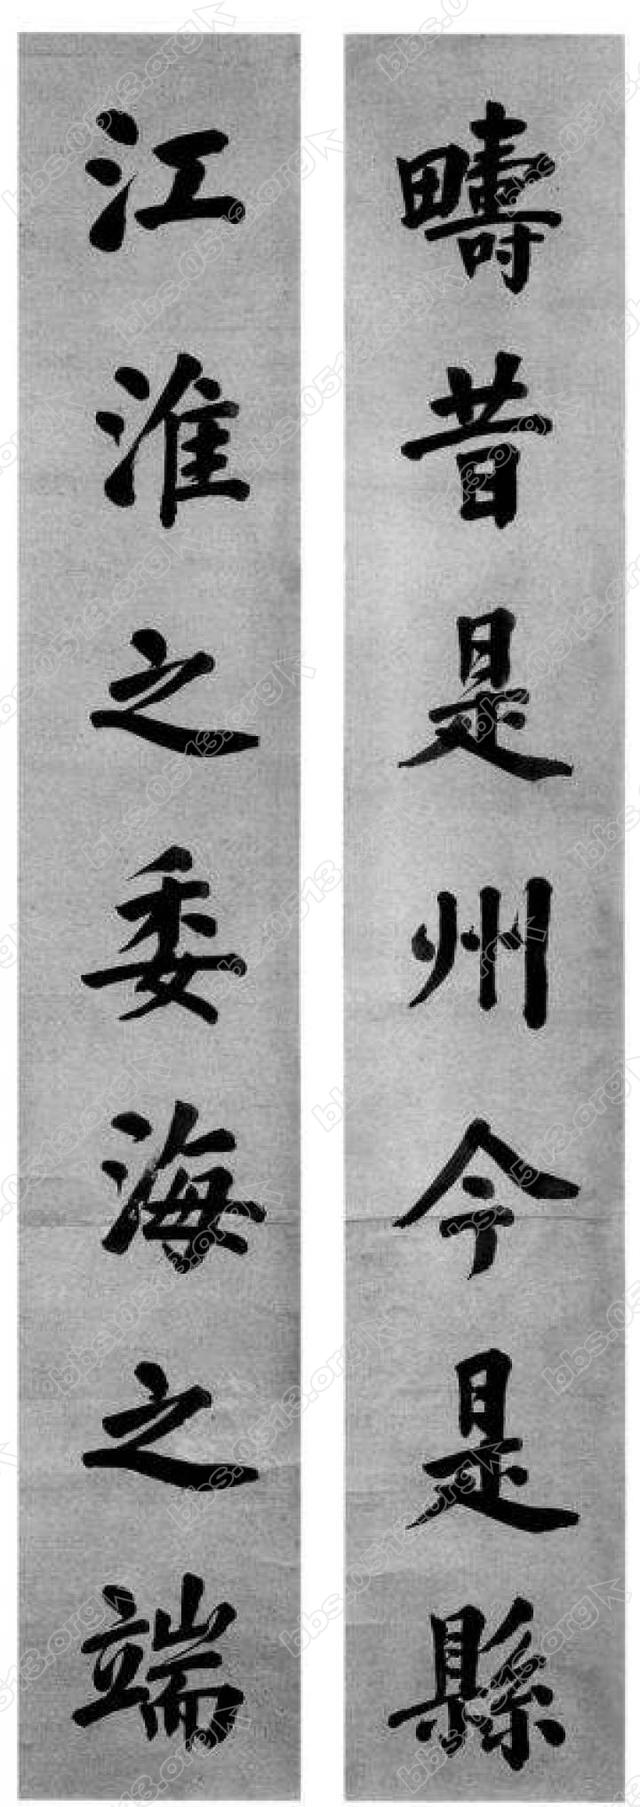 疇昔是州今是縣
江淮之委海之端
bbs.0513.org